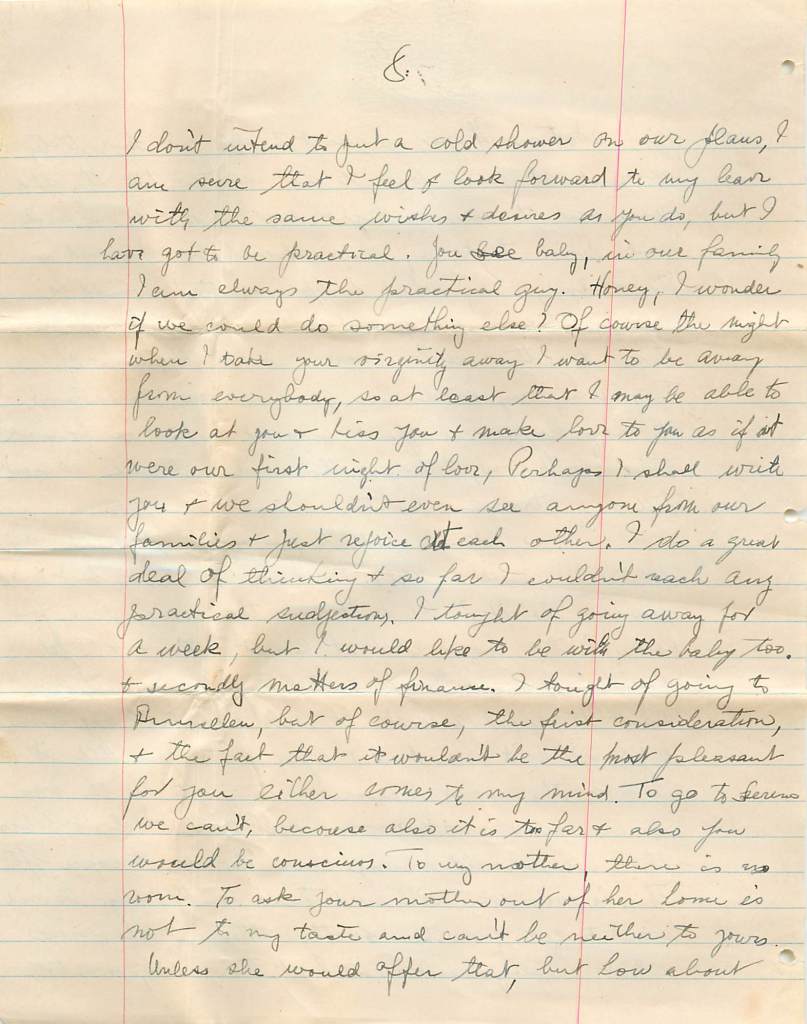 8.
I don't intend to put a cold shower on our plans, I
am sure that I feel & look forward to my leave
with the same wishes & desires as you do, but I
have got to be practical. You see baby, in our family
I am always the practical guy. Honey, I wonder
if we could do something else? Of course the night
when I take your virginity away I want to be away
from everybody, so at least that I may be able to
look at you & kiss you & make love to you as if it
were our first night of love, Perhaps I shall write
you & we shouldn't even see anyone from our
families & just rejoice at each other. I do a great
deal of thinking & so far I couldn't reach any
practical sudjections. I tought of going away for
a week, but I would like to be with the baby too.
& secondly matters of finance. I tought of going to
but of course, the first consideration,
& the fact that it wouldn't be the most pleasant
for you either comes to my mind. To go to
we can't, because also it is too far & also you
would be conscious. To my mother, there is no
room. To ask your mother out of her home is
not to my taste and can't be neither to yours.
Unless she would offer that, but how about